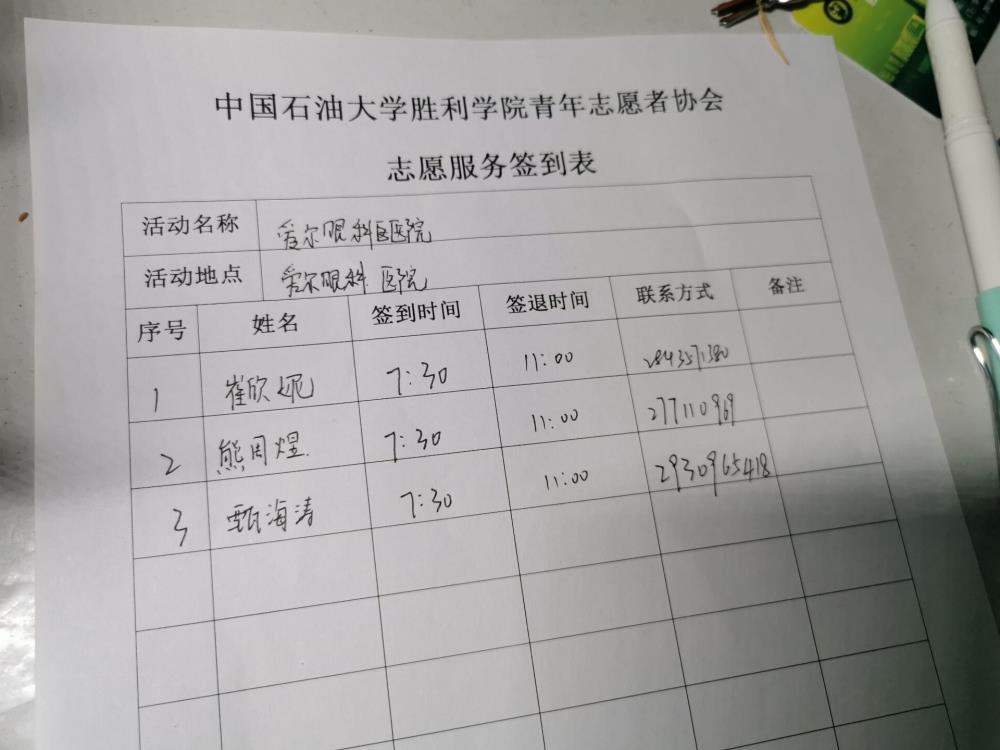 中国石油大学胜利学院青年志愿者协会
志愿服务签到表
活动名称 爱尔眼科医院
活动地点 爱尔眼科 医院
序号 姓名 签到时间 签退时间 联系方式 备注
1 崔欣妮 7:30 11:00
2 熊周煜 7:30 11:00 277110969
3 甄海涛 7:30 11:00 2930965418